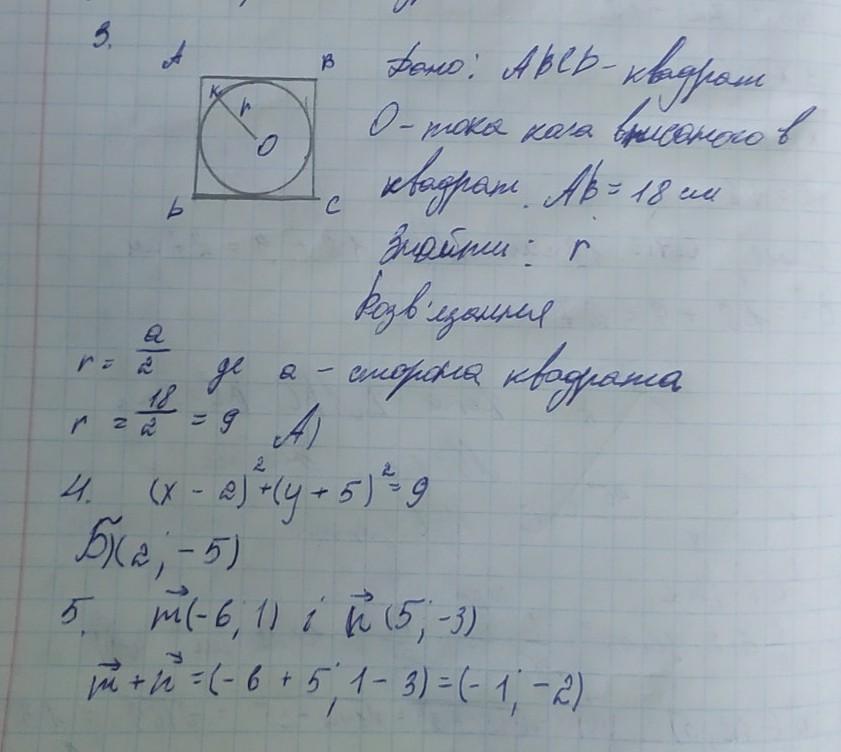 3.
A B
K r
O
D C
Дано: ABCD - квадрат
O - точка кола вписаного в
квадрат. AB = 18 см
Знайти: r
Розв'язання
r = a/2 де a - сторона квадрата
r = 18/2 = 9 А)
4. (x - 2)² + (y + 5)² = 9
Б) (2; -5)
5. m⃗(-6; 1) і n⃗(5; -3)
m⃗ + n⃗ = (-6 + 5; 1 - 3) = (-1; -2)